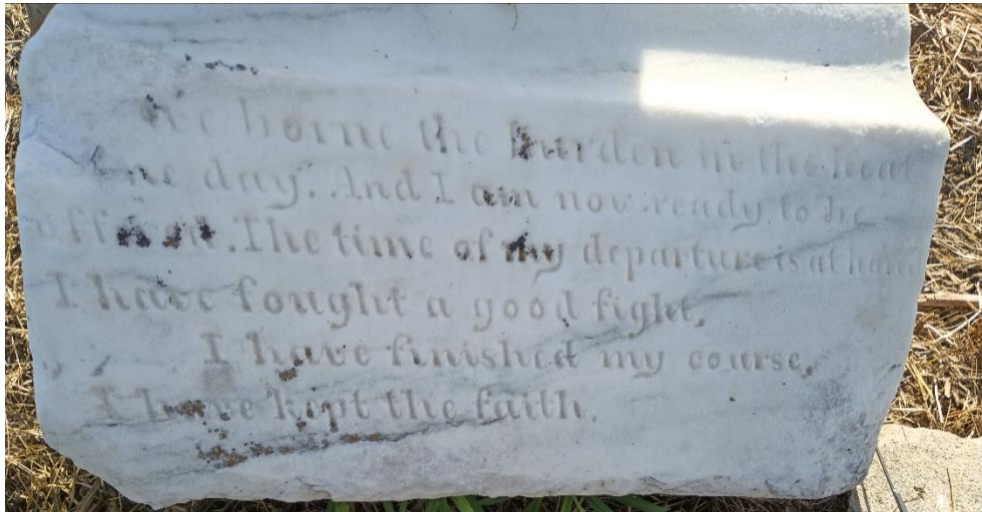 've borne the burden in the heat
the day. And I am now ready to be
offered. The time of my departure is at hand
I have fought a good fight,
I have finished my course,
I have kept the faith.